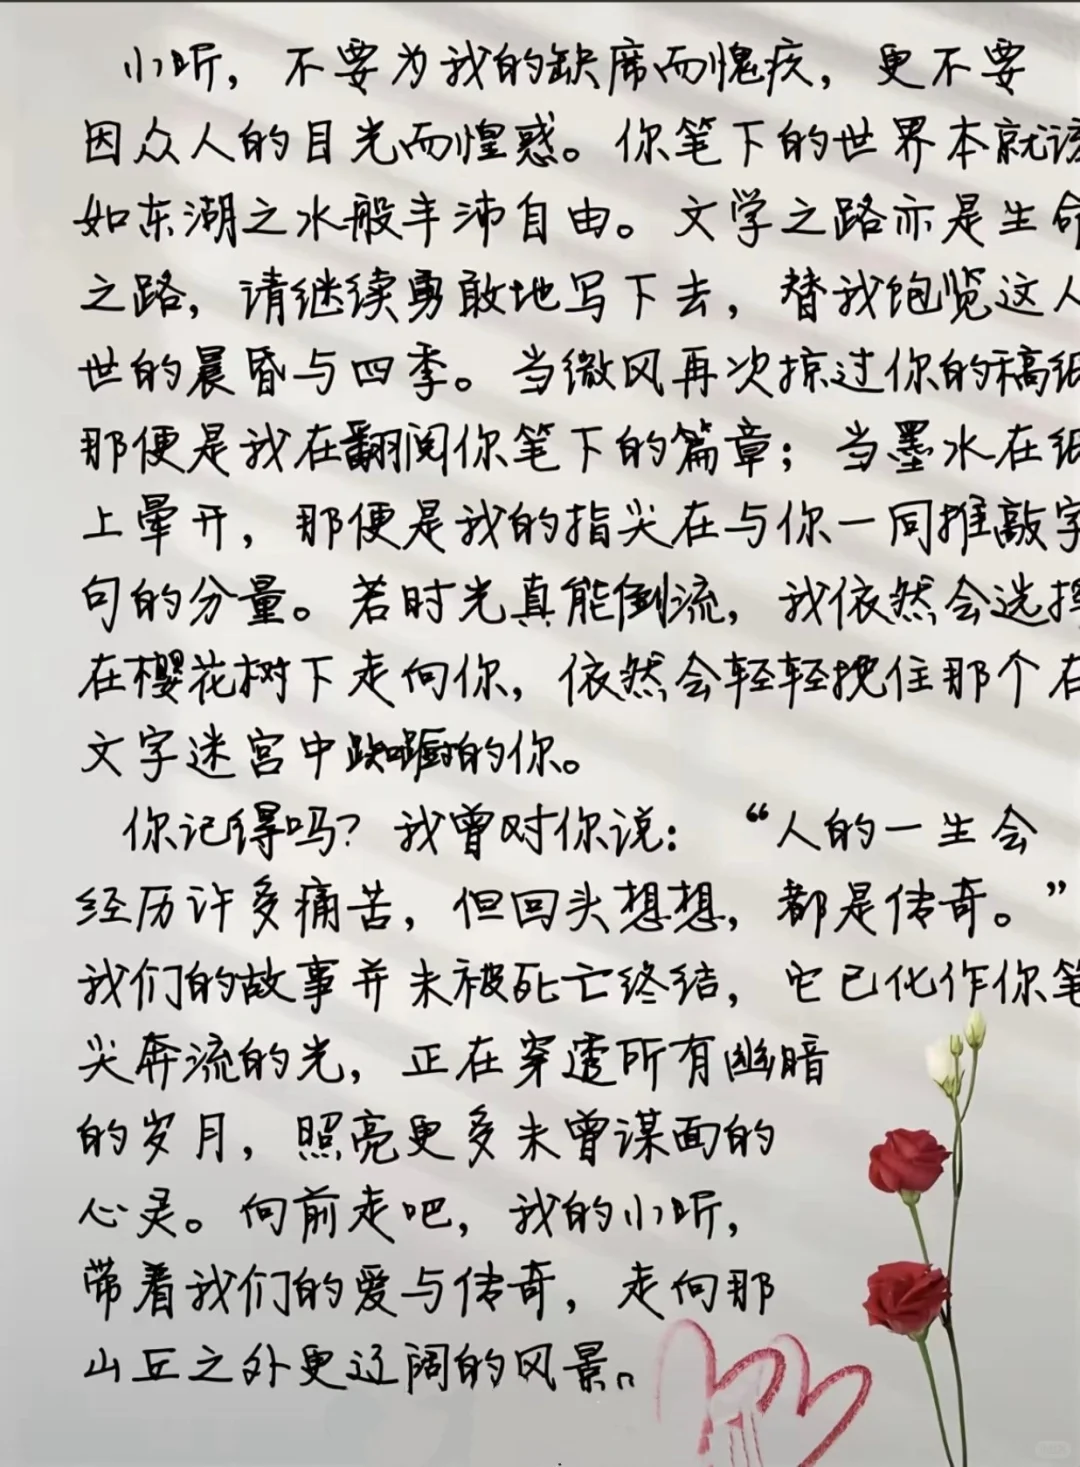 小昕，不要为我的缺席而愧疚，更不要
因众人的目光而惶惑。你笔下的世界本就该
如东湖之水般丰沛自由。文学之路亦是生命
之路，请继续勇敢地写下去，替我饱览这人
世的晨昏与四季。当微风再次掠过你的稿纸
那便是我在翻阅你笔下的篇章；当墨水在纸
上晕开，那便是我的指尖在与你一同推敲字
句的分量。若时光真能倒流，我依然会选择
在樱花树下走向你，依然会轻轻挽住那个在
文字迷宫中踟蹰的你。
你记得吗？我曾对你说：“人的一生会
经历许多痛苦，但回头想想，都是传奇。”
我们的故事并未被死亡终结，它已化作你笔
尖奔流的光，正在穿透所有幽暗
的岁月，照亮更多未曾谋面的
心灵。向前走吧，我的小昕，
带着我们的爱与传奇，走向那
山丘之外更辽阔的风景。